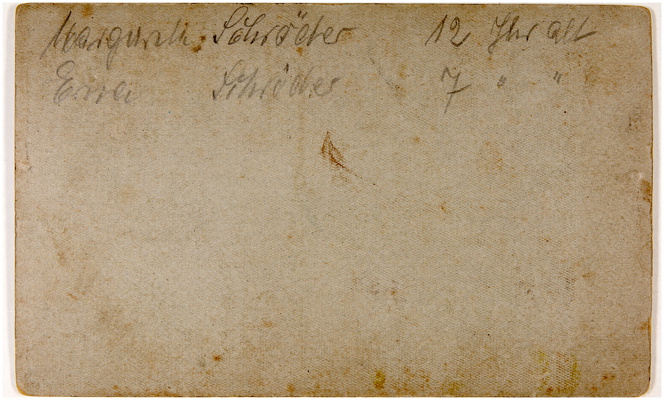 Margareth. Schröder 12 Jhr alt
Erna Schröder 7 " "